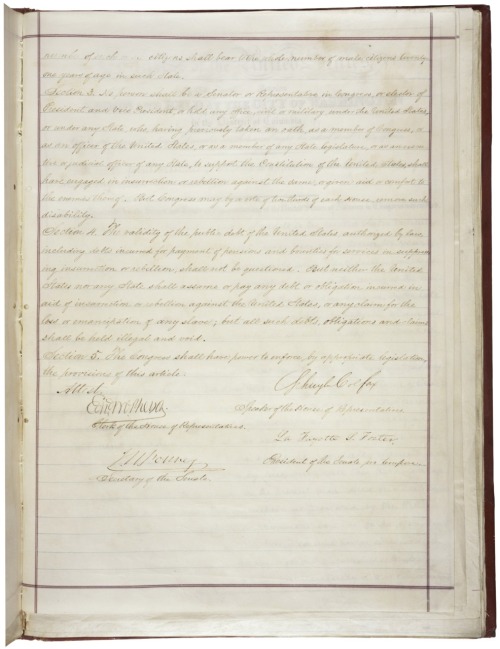 number of such citizens shall bear to the whole number of male citizens twenty
one years of age in such State.
Section 3. No person shall be a Senator or Representative in Congress, or elector of
President and Vice President, or hold any office, civil or military, under the United States,
or under any State, who, having previously taken an oath, as a member of Congress, or
as an officer of the United States, or as a member of any State legislature, or as an execu-
tive or judicial officer of any State, to support the Constitution of the United States, shall
have engaged in insurrection or rebellion against the same, or given aid or comfort to
the enemies thereof. But Congress may by a vote of two thirds of each House, remove such
disability.
Section 4. The validity of the public debt of the United States, authorized by law,
including debts incurred for payment of pensions and bounties for services in suppress-
ing insurrection or rebellion, shall not be questioned. But neither the United
States nor any State shall assume or pay any debt or obligation incurred in
aid of insurrection or rebellion against the United States, or any claim for the
loss or emancipation of any slave; but all such debts, obligations and claims
shall be held illegal and void.
Section 5. The Congress shall have power to enforce, by appropriate legislation,
the provisions of this article.
Attest
Schuyler Colfax
Edwd McPherson
Speaker of the House of Representatives.
Clerk of the House of Representatives.
La Fayette S. Foster,
J. W. Forney
President of the Senate pro tempore.
Secretary of the Senate.